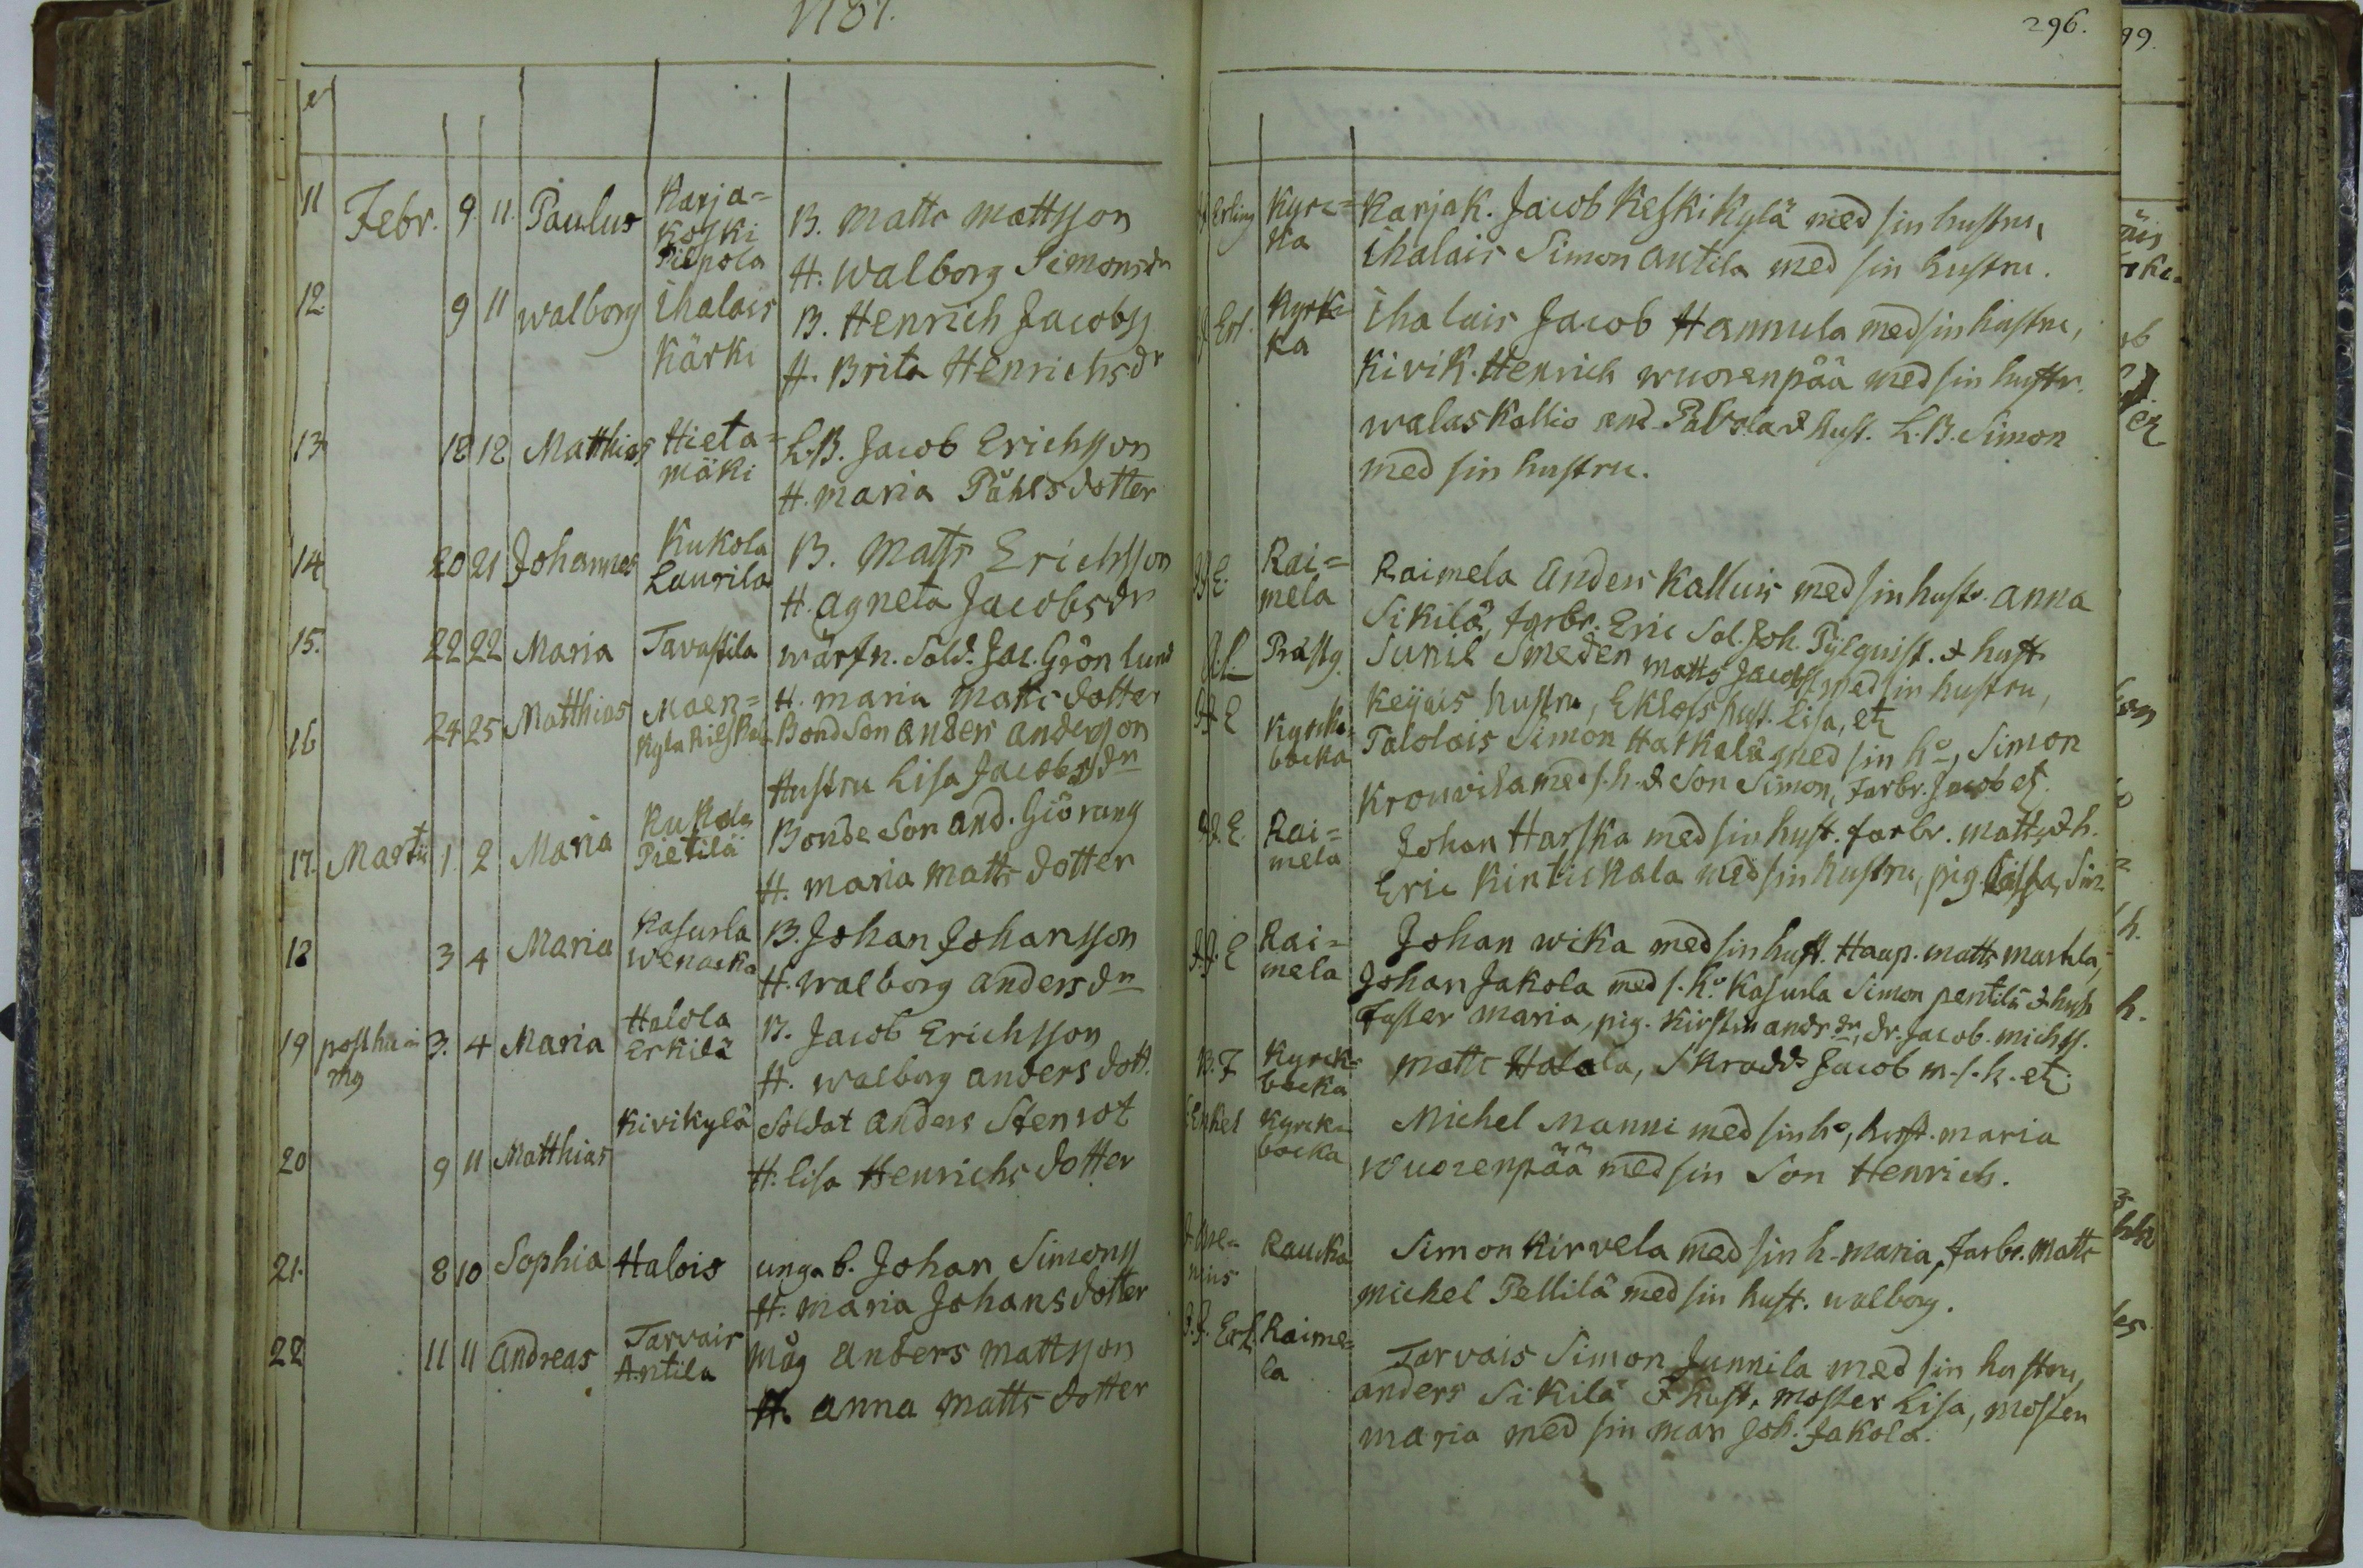 1787.
11 Febr. 9. 11. Paulus Karja=
koski
Pilpola
B. Matts Mattsson
H. Walborg Simonsdr
12. 9 11 Walborg Ihalais
Kärki
B. Henrich Jacobss
H. Brita Henrichsdr
13 18 18 Matthias Hieta=
mäki
L.B. Jacob Erichsson
H. Maria Påhlsdotter
14 20 21 Johannes Kukola
Laurila
B. Matts Erichsson
H. Agneta Jacobsdr
15. 22 22 Maria Tavastila
wärfn. Sold. Jac. Grönlund
H. Maria Matts dotter
16 24 25 Matthias Maen=
kyla
Bond Son Anders Andersson
Hustru Lisa Jacobsdr
17. Martii 1. 2 Maria Kukola
Pietilä
Bonde Son And. Giörang
H. Maria Matts dotter
18 3 4 Maria Kasurla
Wenacka
B. Johan Johansson
H. Walborg Andersdr
19 posthu=
mg 3. 4 Maria Halola
Erkilä
B. Jacob Erichsson
H. Walborg Anders dott.
20 9 11 Matthias Kivikylä
Soldat Anders Stenrot
H. Lisa Henrichs dotter
21. 8 10 Sophia Halois
unga b. Johan Simonss
H. Maria Johans dotter
22 11 11 Andreas Tarvais
Antila
Måg Anders Mattsson
H. Anna Matts dotter
296.
Erling Kyrc=
ka
Karjak. Jacob Keskikylä med sin hustru,
Ihalais Simon Antila med sin hustru.
Erl. Kyrk=
ka
Ihalais Jacob Hannula med sin hustru,
Kivik. Henrich Wuorenpää med sin hustr.
Walaskallio And. Pavola & hust. L.B. Simon
med sin hustru.
E. Rai=
mela
Raimela Anders Kalluis med sin hustr. Anna
Sikilä, farbr. Eric Sol. Joh. Pijlquist. & hust.
Prästg.
Sunil Smeden Matts Jacobss med sin hustru,
Keijais hustru, Eklofs hust. Lisa, etz
E Kyrcko
backa
Palolais Simon Hatkala med sin ho, Simon
Krouvila med s.h. & Son Simon, Farbr. Jacob etz.
E. Rai=
mela
Johan Harska med sin hust. farbr. Matts & h.
Eric Kintickala med sin hustru, pig.
E Rai=
mela
Johan Wika med sin hust. Haap. Matts Markla,
Johan Jakola med s. ho. Kasurla Simon Pentilä & hust
Faster Maria, pig. Kirstin Andr.dr, dr. Jacob. Michss.
B. F Kyrck=
backa
Matts Halola, Skradd. Jacob m.s.h. etz
Enkel Kyrck=
backa
Michel Manni med sin ho, hust. Maria
Wuorenpää med sin Son Henrich.
Raucka
Simon Kirvela med sin h. Maria, farbr. Matts
Michel Pellilä med sin hust. Walborg.
Erl. Raime=
la
Tarvais Simon Junnila med sin hustru,
Anders Sikilä & hust, Moster Lisa, Moster
Maria med sin man Joh. Jakola.
99.